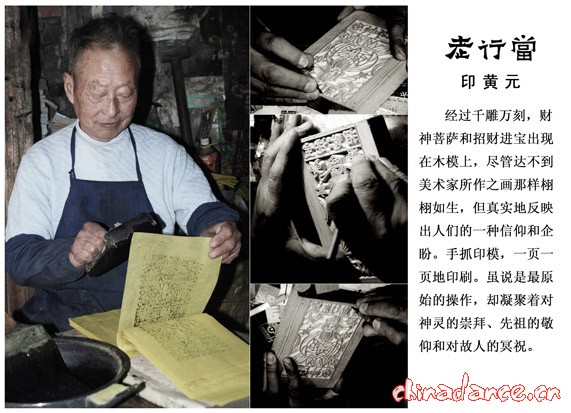 老行当
印黄元
经过千雕万刻，财
神菩萨和招财进宝出现
在木模上，尽管达不到
美术家所作之画那样栩
栩如生，但真实地反映
出人们的一种信仰和企
盼。手抓印模，一页一
页地印刷。虽说是最原
始的操作，却凝聚着对
神灵的崇拜、先祖的敬
仰和对故人的冥祝。
chinadance.cn